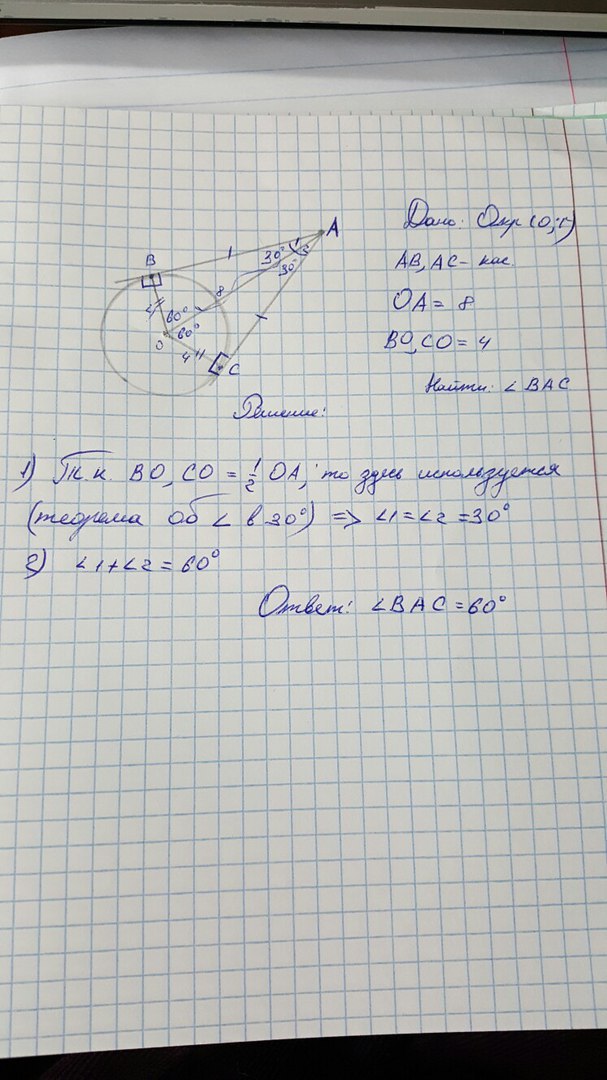 A
B
C
O
1
2
30°
30°
8
60°
60°
4
4
Дано: Окр (O; r)
AB, AC - кас.
OA = 8
BO, CO = 4
Найти: ∠ BAC
Решение:
1) Т.к. BO, CO = 1/2 OA, то здесь используется
(теорема об ∠ в 30°) => ∠1 = ∠2 = 30°
2) ∠1 + ∠2 = 60°
Ответ: ∠BAC = 60°